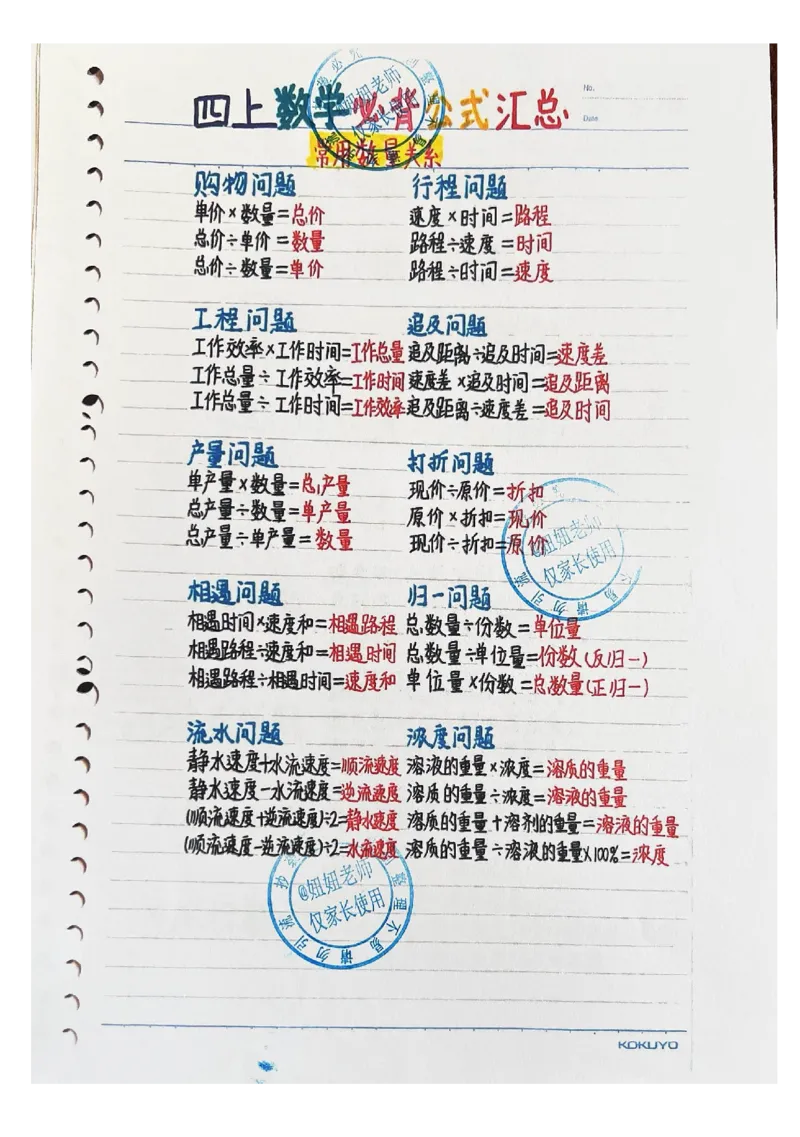 四上数学必背公式汇总
No.
Date
常用数量关系
购物问题
单价×数量=总价
总价÷单价=数量
总价÷数量=单价
行程问题
速度×时间=路程
路程÷速度=时间
路程÷时间=速度
工程问题
工作效率×工作时间=工作总量
工作总量÷工作效率=工作时间
工作总量÷工作时间=工作效率
追及问题
追及距离÷追及时间=速度差
速度差×追及时间=追及距离
追及距离÷速度差=追及时间
产量问题
单产量×数量=总产量
总产量÷数量=单产量
总产量÷单产量=数量
打折问题
现价÷原价=折扣
原价×折扣=现价
现价÷折扣=原价
相遇问题
相遇时间×速度和=相遇路程
相遇路程÷速度和=相遇时间
相遇路程÷相遇时间=速度和
归一问题
总数量÷份数=单位量
总数量÷单位量=份数(反归一)
单位量×份数=总数量(正归一)
流水问题
静水速度+水流速度=顺流速度
静水速度-水流速度=逆流速度
(顺流速度+逆流速度)÷2=静水速度
(顺流速度-逆流速度)÷2=水流速度
浓度问题
溶液的重量×浓度=溶质的重量
溶质的重量÷浓度=溶液的重量
溶质的重量+溶剂的重量=溶液的重量
溶质的重量÷溶液的重量×100%=浓度
@妞妞老师
仅家长使用
KOKUYO